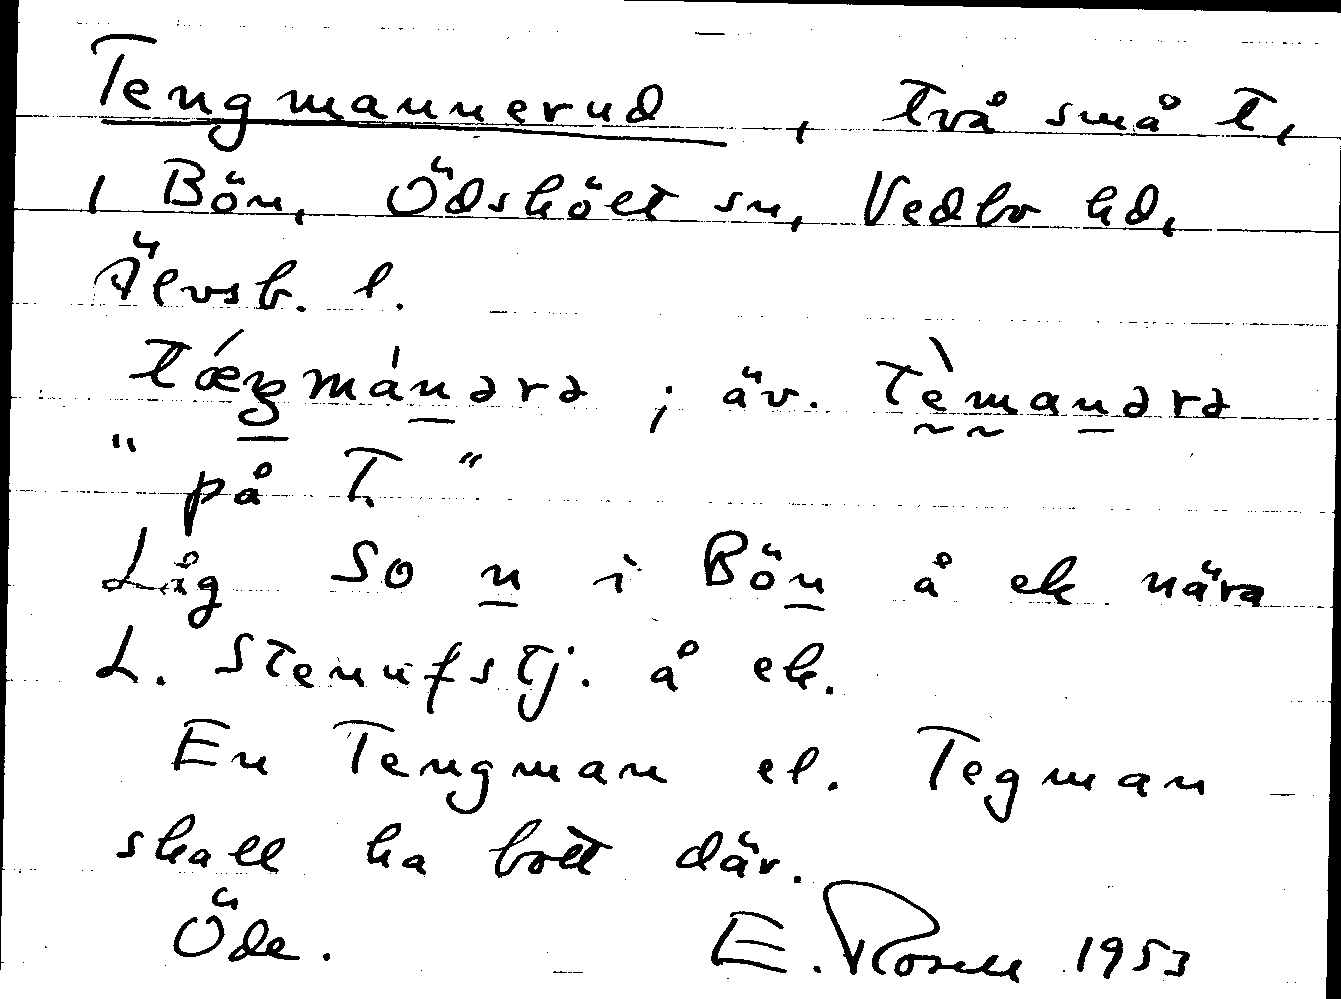 Tengmannerud, två små t,
i Bön, Ödskölt sn, Vedbo hd,
Älvsb. l.
tǽŋmánərə ; äv. tèmanərə
" på T. "
Låg SO n i Bön å ek nära
L. Stennfstj. å ek.
En Tengman el. Tegman
skall ha bott där.
Öde. E. Rosell 1953